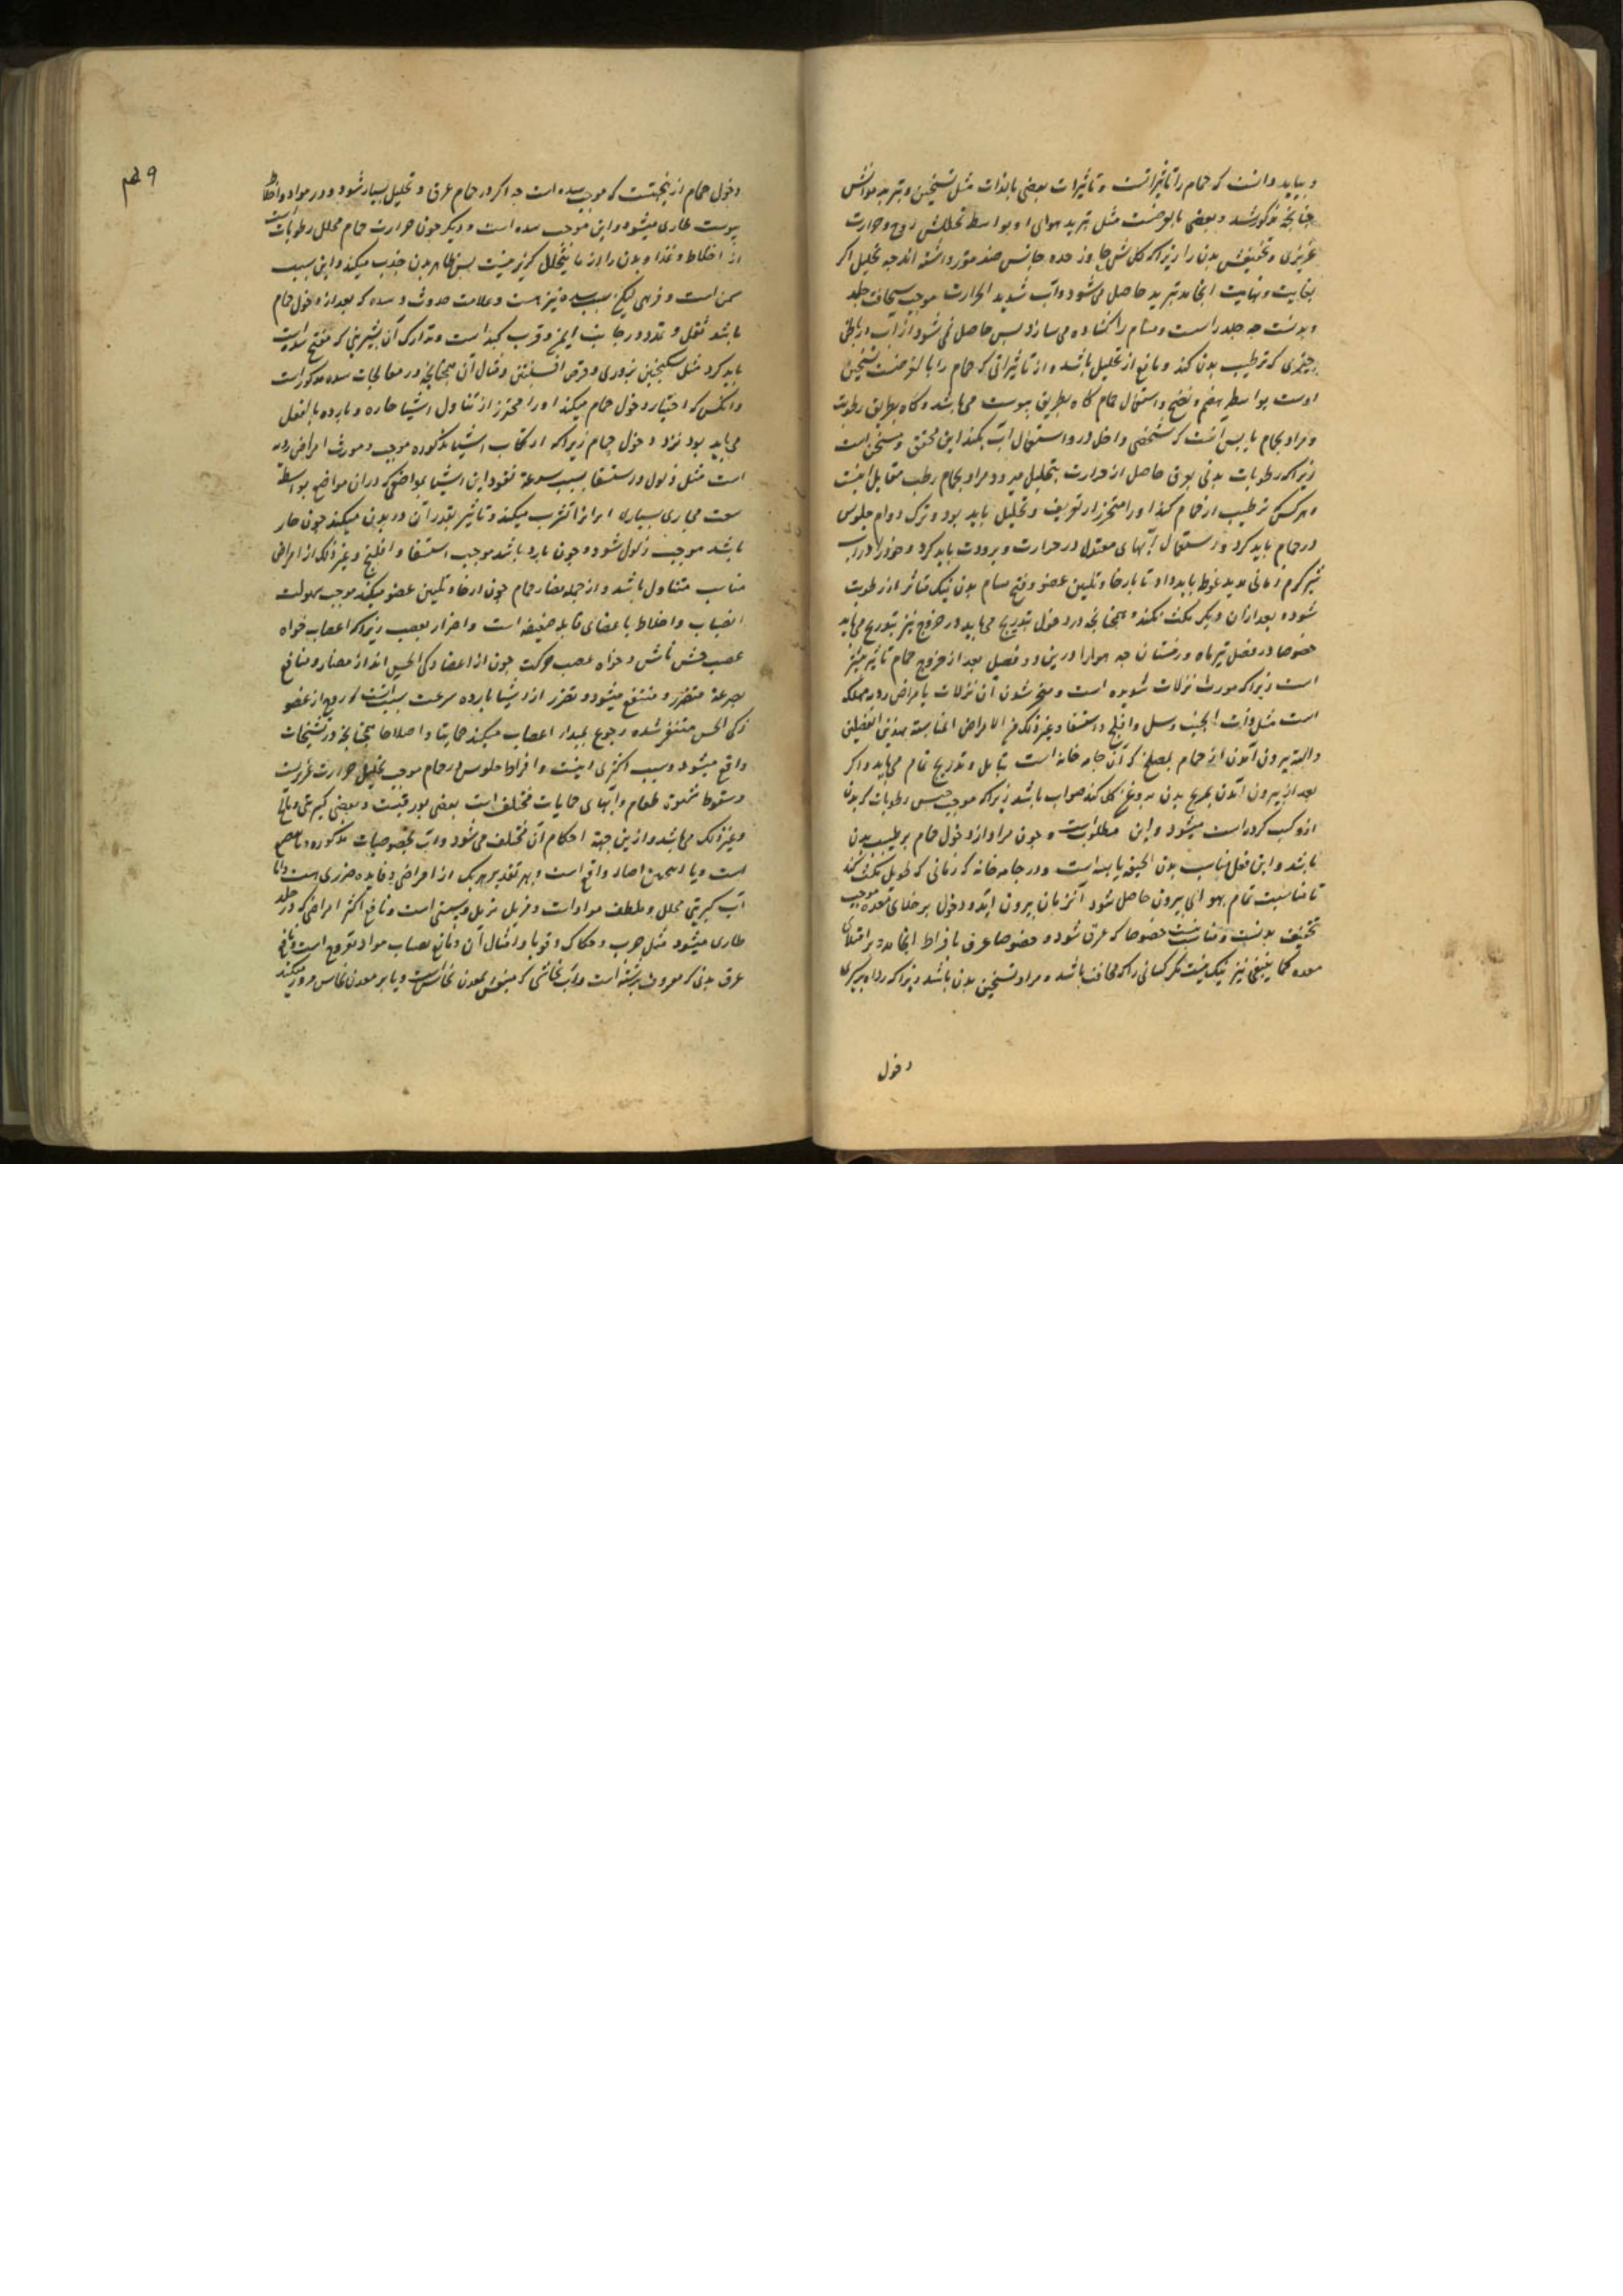 و بباید دانست که حمام را تاثیراتست و تاثیرات بعضی بالذات مثل تسخین و تبرید هوائش
چنانچه مذکور شد و بعضی بالعرضست مثل تبرید هوای او بواسطه تحلیلش روح و حرارت
غریزی و تجفیفش بدن را زیراکه کل شی جاوز حده جانس ضده مقرر داشته اند چه تحلیل اگر
بغایت و نهایت انجامد تبرید حاصل می شود و آب شدید الحرارت موجب سخافت جلد
و بدنست چه جلد را سست و مسام را کشاده می سازد پس حاصل نمی شود از آب در باطن
چیزی که ترطیب بدن کند و مانع از تحلیل باشد و از تاثیراتی که حمام را بالعرضست تسخین
اوست بواسطه هضم و نضج و استعمال حمام کاه بطریق یبوست می باشد و کاه بطریق رطوبت
و مراد بحمام یابس آنست که شخصی داخل در و استعمال آب نکند این مجفف و مسخن است
زیراکه رطوبات بدنی بعرق حاصل از حرارت بتحلیل میرود و مراد بحمام رطب مقابل اینست
و هرکس ترطیب از حمام کند او را متحرز از تعریق و تحلیل باید بود و ترک دوام جلوس
در حمام باید کرد و در استعمال آبهای معتدل در حرارت و برودت باید کرد و خود را در آب
شیر گرم زمانی مدید غوط باید داد تا بارخا و تلیین عضو و فتح مسام بدن نیک متاثر از رطوبت
شود و بعد از آن دیگر مکث نکند و همچنانچه در دخول بتدریج می باید در خروج نیز بتدریج می باید
خصوصا در فصل تیرماه و زمستان چه هوا را درین دو فصل بعد از خروج حمام تاثیر بیشتر
است زیراکه مورث نزلات شدیده است و منجر شدن آن نزلات بامراض ردیه مهلکه
است مثل ذات الجنب و سل و افلج و استسقا و غیر ذلک من الامراض المناسبة بهذین الفصلین
و البته بیرون آمدن از حمام بمسلخ که آن جامه خانه است بتامل و تدریج تمام می باید و اگر
بعد از بیرون آمدن تمریخ بدن بروغن کل کند صواب باشد زیراکه موجب حبس رطوبات که بدن
ازو کسب کرده است میشود و این مطلوبست و چون مراد از دخول حمام ترطیب بدن
باشد و این فعل مناسب بدن نحیف یابسه است و در جامه خانه که زمانی که طویل مکث کند
تا مناسبت تمام بهوای بیرون حاصل شود آنزمان بیرون آید و دخول بر خلای معده موجب
تجفیف بدنست و مناسب نیست خصوصا که عرق شود و خصوصا عرق بافراط انجامد و بر امتلای
معده کما ینبغی نیز نیک نیست مگر کسانی را که نحافت باشد و مراد تسخین بدن باشد زیراکه
دخول
۹هم
دخول حمام ازینجهتست که موجب سده است چه اگر در حمام عرق و تحلیل بسیار شود و در مواد و اخلاط
یبوست طاری میشود و این موجب سده است و دیگر چون حرارت حمام محلل رطوباتست
از اخلاط و غذا و بدن را از ما یتحلل گریز نیست پس ظاهر بدن جذب میکند و این سبب
سمن است و فربهی لیکن سبب سده نیز هست و علامت حدوث سده که بعد از دخول حمام
باشد ثقل و تمدد در جانب ایمن و قرب کبد است و تدارک آن بشربتی که مفتح سده است
باید کرد مثل سکنجبین بزوری و قرص افسنتین و مثال آن همچنانچه در معالجات سده مذکور است
و آنکس که اختیار دخول حمام میکند او را محترز از تناول اشیا حاره و بارده بالفعل
می باید بود نزد دخول حمام زیراکه ارتکاب اشیا مذکوره موجب و مورث امراض ردیه
است مثل ذبول و استسقا بسبب سرعة نفوذ این اشیا بمواضعی که در آن مواضع بواسطه
سعت مجاری بسیاری ابرازا تشرب میکند و تاثیر بقدر آن در بدن میکند چون حار
باشد موجب ذبول شود و چون بارد باشد موجب استسقا و افلج و غیر ذلک از امراض
مناسب متناول باشد و از جمله مضار حمام چون ارخا و تلیین عضو میکند موجب سهولت
انصباب و اخلاط باعضای قابله ضعیفه است و اضرار بعصب زیراکه اعصاب خواه
عصب حسش باش و خواه عصب حرکت چون از اعضا ذکی الحس اند از مضار و منافع
بسرعة متضرر و منتفع میشود و تضرر از اشیا بارده سرعت بیشتر است که روح از عضو
ذکی الحس متنفر شده رجوع بمبدا اعصاب میکند حمایتا و اصلاحا همچنانچه در تشنجات
واقع میشود و سبب اکثری اینست و افراط جلوس در حمام موجب تحلیل حرارت غریزیست
و سقوط شهوت طعام و آبهای حمامات مختلف است بعضی بورقیست و بعضی کبریتی و مالح
و غیر ذلک می باشد و ازین جهة احکام آن مختلف می شود و آب بخصوصیات مذکوره
است و یا واقع است و بهر تقدیر هر یک از امراض و فایده ضرری هست و اما
آب کبریتی محلل و ملطف مواد است و مزیل ترهل و سستی است و نافع اکثر امراضی که در جلد
طاری میشود مثل جرب و حکاک و قوبا و امثال آن و مانع انصباب مواد بقروح است و نافع
عرق مدنی که معروف برشته است و آب نحاسی که منبعش معدن نحاس است و یا بر معدن نحاس مرور میکند